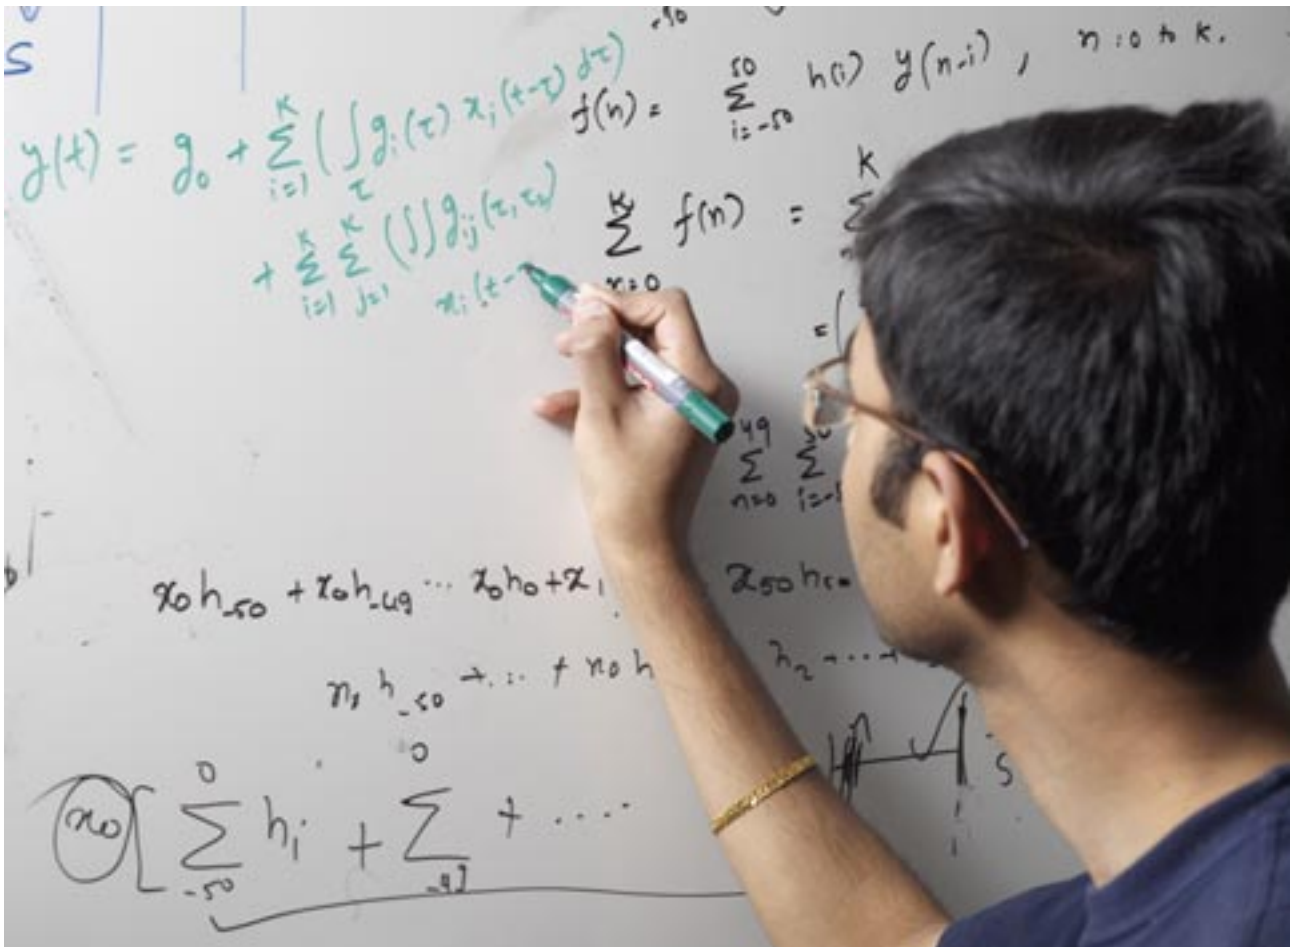 S
y(t) = g₀ + Σ_{i=1}^{K} ( ∫_τ g_i(τ) x_i(t-τ) dτ)
+ Σ_{i=1}^{K} Σ_{j=1}^{K} ( ∫∫ g_{ij}(τ, τ₂)
x_i(t-
-50
f(n) = Σ_{i=-50}^{50} h(i) y(n-i) , n=0 to K.
Σ_{n=0}^{K} f(n) = Σ^{K}
= (
Σ_{n=0}^{49} Σ_{i=-
x₀h₋₅₀ + x₀h₋₄₉ ... x₀h₀ + x₁ x₅₀h₅₀
x₁ h₋₅₀ + ... + x₀ h h₂ + ... +
x₀ [ Σ_{-50}^{0} h_i + Σ_{-49}^{0} + ....
S